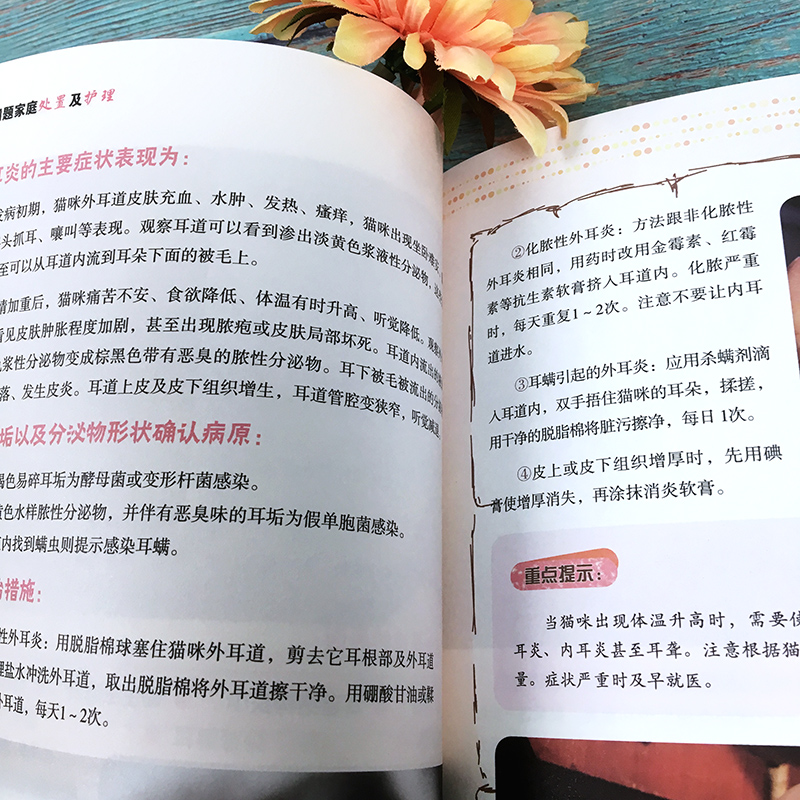 题家庭处置及护理
炎的主要症状表现为：
病初期，猫咪外耳道皮肤充血、水肿、发热、瘙痒，猫咪出现坐卧
头抓耳、嚷叫等表现。观察耳道可以看到渗出淡黄色浆液性分泌物，
至可以从耳道内流到耳朵下面的被毛上。
情加重后，猫咪痛苦不安、食欲降低、体温有时升高、听觉降低。
看见皮肤肿胀程度加剧，甚至出现脓疱或皮肤局部坏死。耳道内流出的
浆性分泌物变成棕黑色带有恶臭的脓性分泌物。耳下被毛被流出的分
落、发生皮炎。耳道上皮及皮下组织增生，耳道管腔变狭窄，听觉减退
垢以及分泌物形状确认病原：
褐色易碎耳垢为酵母菌或变形杆菌感染。
黄色水样脓性分泌物，并伴有恶臭味的耳垢为假单胞菌感染。
内找到螨虫则提示感染耳螨。
措施：
性外耳炎：用脱脂棉球塞住猫咪外耳道，剪去它耳根部及外耳道
理盐水冲洗外耳道，取出脱脂棉将外耳道擦干净。用硼酸甘油或鞣
外耳道，每天1～2次。
②化脓性外耳炎：方法跟非化脓性
外耳炎相同，用药时改用金霉素、红霉
素等抗生素软膏挤入耳道内。化脓严重
时，每天重复1～2次。注意不要让内耳
道进水。
③耳螨引起的外耳炎：应用杀螨剂滴
入耳道内，双手捂住猫咪的耳朵，揉搓，
用干净的脱脂棉将脏污擦净，每日1次。
④皮上或皮下组织增厚时，先用碘
膏使增厚消失，再涂抹消炎软膏。
重点提示：
当猫咪出现体温升高时，需要使
耳炎、内耳炎甚至耳聋。注意根据猫
量。症状严重时及早就医。